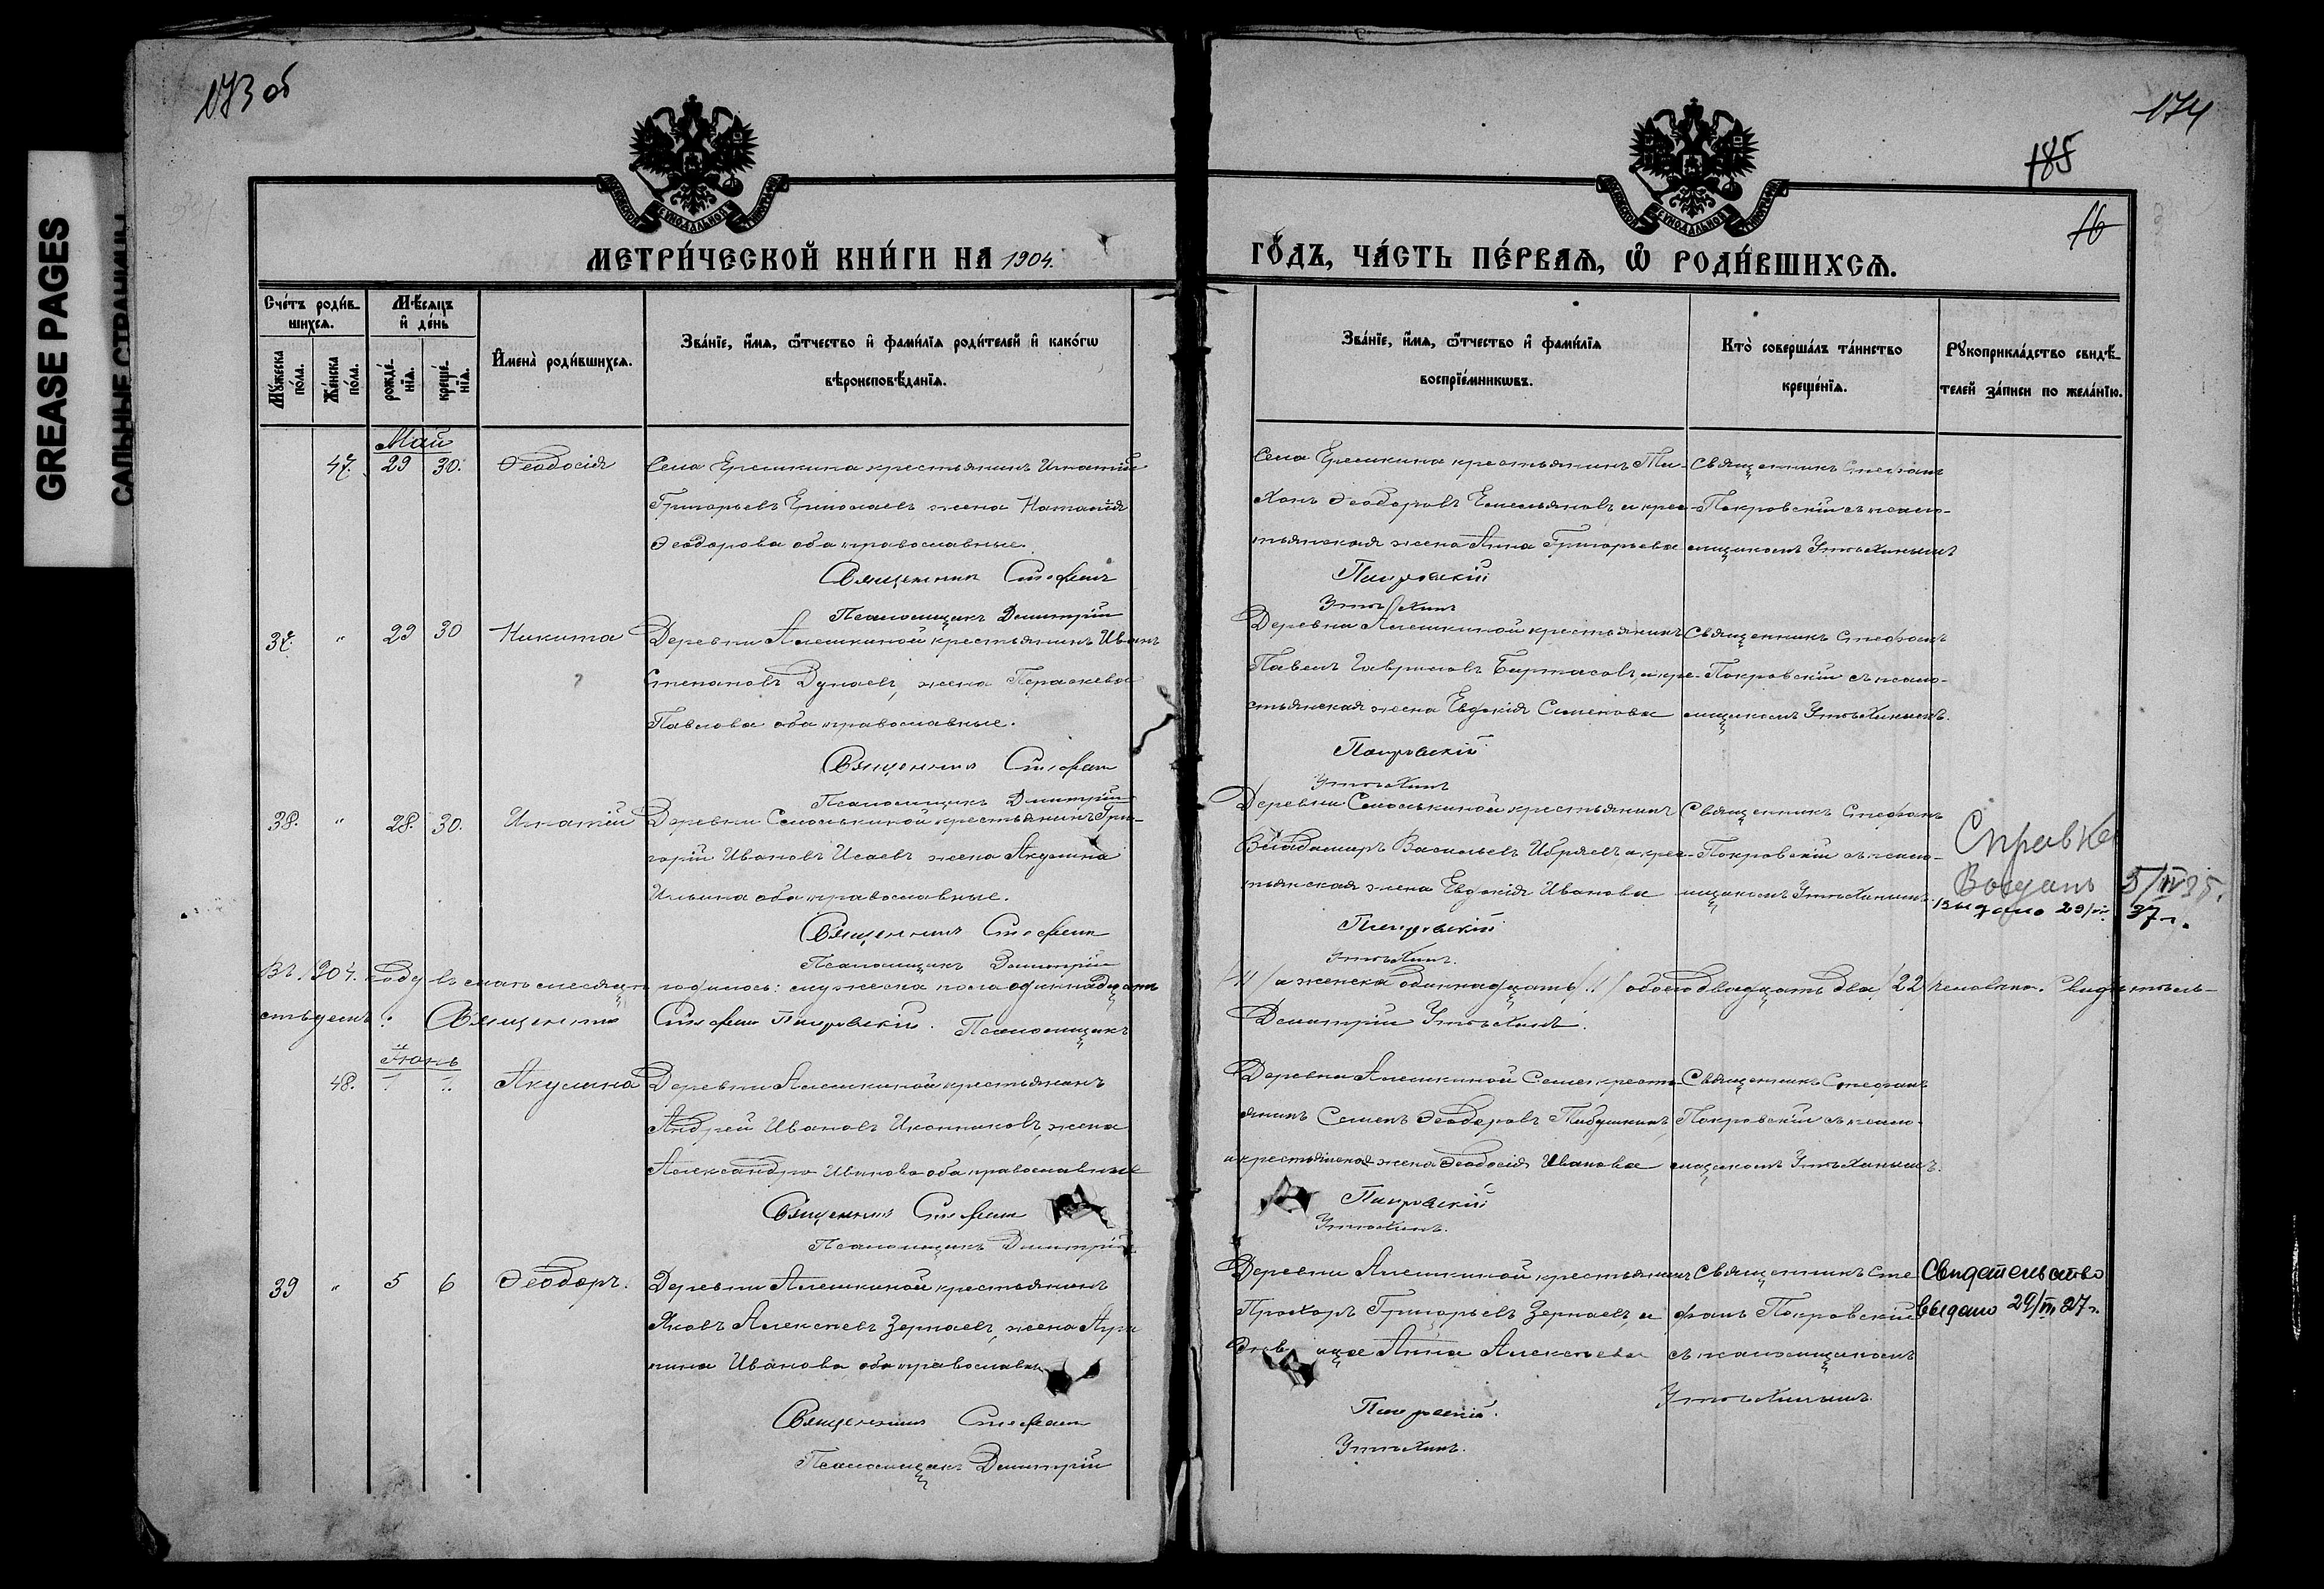 173 об
174
185
16
GREASE PAGES
САЛЬНЫЕ СТРАНИЦЫ
МЕТРИ́ЧЕСКОЙ КНИ́ГИ НА 1904.
ГО́ДЪ, ЧА́СТЬ ПЕ́РВАѦ, Ѽ РОДИ́ВШИХСѦ.
Сче́тъ роди́в-
шихсѧ.
Мѣ́сяцъ
и҆ де́нь
Мꙋ́жеска
по́ла.
Же́нска
по́ла.
рожде́-
нїѧ.
креще́-
нїѧ.
И҆мена̀ роди́вшихсѧ.
Зва́нїе, и҆́мѧ, ѻ҆́тчество и҆ фами́лїѧ роди́телей и҆ како́гѡ
вѣроисповѣ́данїѧ.
Зва́нїе, и҆́мѧ, ѻ҆́тчество и҆ фами́лїѧ
воспрїе́мникѡвъ.
Кто̀ соверша́лъ та́инство
креще́нїѧ.
Рꙋкоприкла́дство свидѣ́-
телей за́писи по жела́нїю.
Май
47. 29 30. Ѳеодосія
Села Ерешкина крестьянинъ Игнатій
Григорьевъ Ермолаевъ жена Наталія
Ѳеодорова оба православные.
Священникъ Стефанъ
Псаломщикъ Димитрій
Села Ерешкина крестьянинъ Ти-
хонъ Ѳеодоровъ Емельяновъ и крес-
тьянская жена Анна Григорьева
Покровскій
Утѣхинъ
Священникъ Стефанъ
Покровскій съ псало-
мщикомъ Утѣхинымъ
37. " 29 30 Никита
Деревни Алешкиной крестьянинъ Иванъ
Степановъ Дунаевъ, жена Параскева
Павлова оба православные.
Священникъ Стефанъ
Псаломщикъ Димитрій
Деревни Алешкиной крестьянинъ
Павелъ Гавриловъ и кре-
стьянская жена Евдокія Семенова
Покровскій
Утѣхинъ
Священникъ Стефанъ
Покровскій съ псало-
мщикомъ Утѣхинымъ.
38. " 28. 30. Игнатій
Деревни крестьянинъ Гри-
горій Ивановъ Исаевъ жена Акулина
Ильина оба православные.
Священникъ Стефанъ
Псаломщикъ Димитрій
Деревни крестьянинъ
Владимиръ Васильевъ и крес-
тьянская жена Евдокія Иванова
Покровскій
Утѣхинъ.
Священникъ Стефанъ
Покровскій съ псало-
мщикомъ Утѣхинымъ.
Справка
Выдана 5/IV 35.
Выдано 29/ 37 г.
Въ 1904. году въ маѣ мѣсяцѣ родилось: мужеска пола одиннадцать
/11/ а женска одиннадцать /11/ обоего двадцать два /22/ человѣка. Свидѣтель-
ствуемъ: Священникъ Стефанъ Покровскій. Псаломщикъ
Димитрій Утѣхинъ.
Іюнь
48. 1. 2. Акулина
Деревни Алешкиной крестьянинъ
Андрей Ивановъ Иконниковъ, жена
Александра Иванова оба православные
Священникъ Стефанъ
Псаломщикъ Димитрій
Деревни Алешкиной
Семенъ Ѳеодоровъ
и крестьянская жена Ѳеодосія Иванова
Покровскій
Утѣхинъ.
Священникъ Стефанъ
Покровскій съ псало-
мщикомъ Утѣхинымъ.
39 " 5 6 Ѳеодоръ.
Деревни Алешкиной крестьянинъ
Яковъ Алексѣевъ Зернаевъ, жена Агри
пина Иванова оба православны
Священникъ Стефанъ
Псаломщикъ Димитрій
Деревни Алешкиной крестьянинъ
Прохоръ Григорьевъ Зернаевъ, и
Анна Алексѣева
Покровскій.
Утѣхинъ.
Священникъ Сте
фанъ Покровскій
съ псаломщикомъ
Утѣхинымъ.
Свидетельство
выдано 29/VII 37 г.